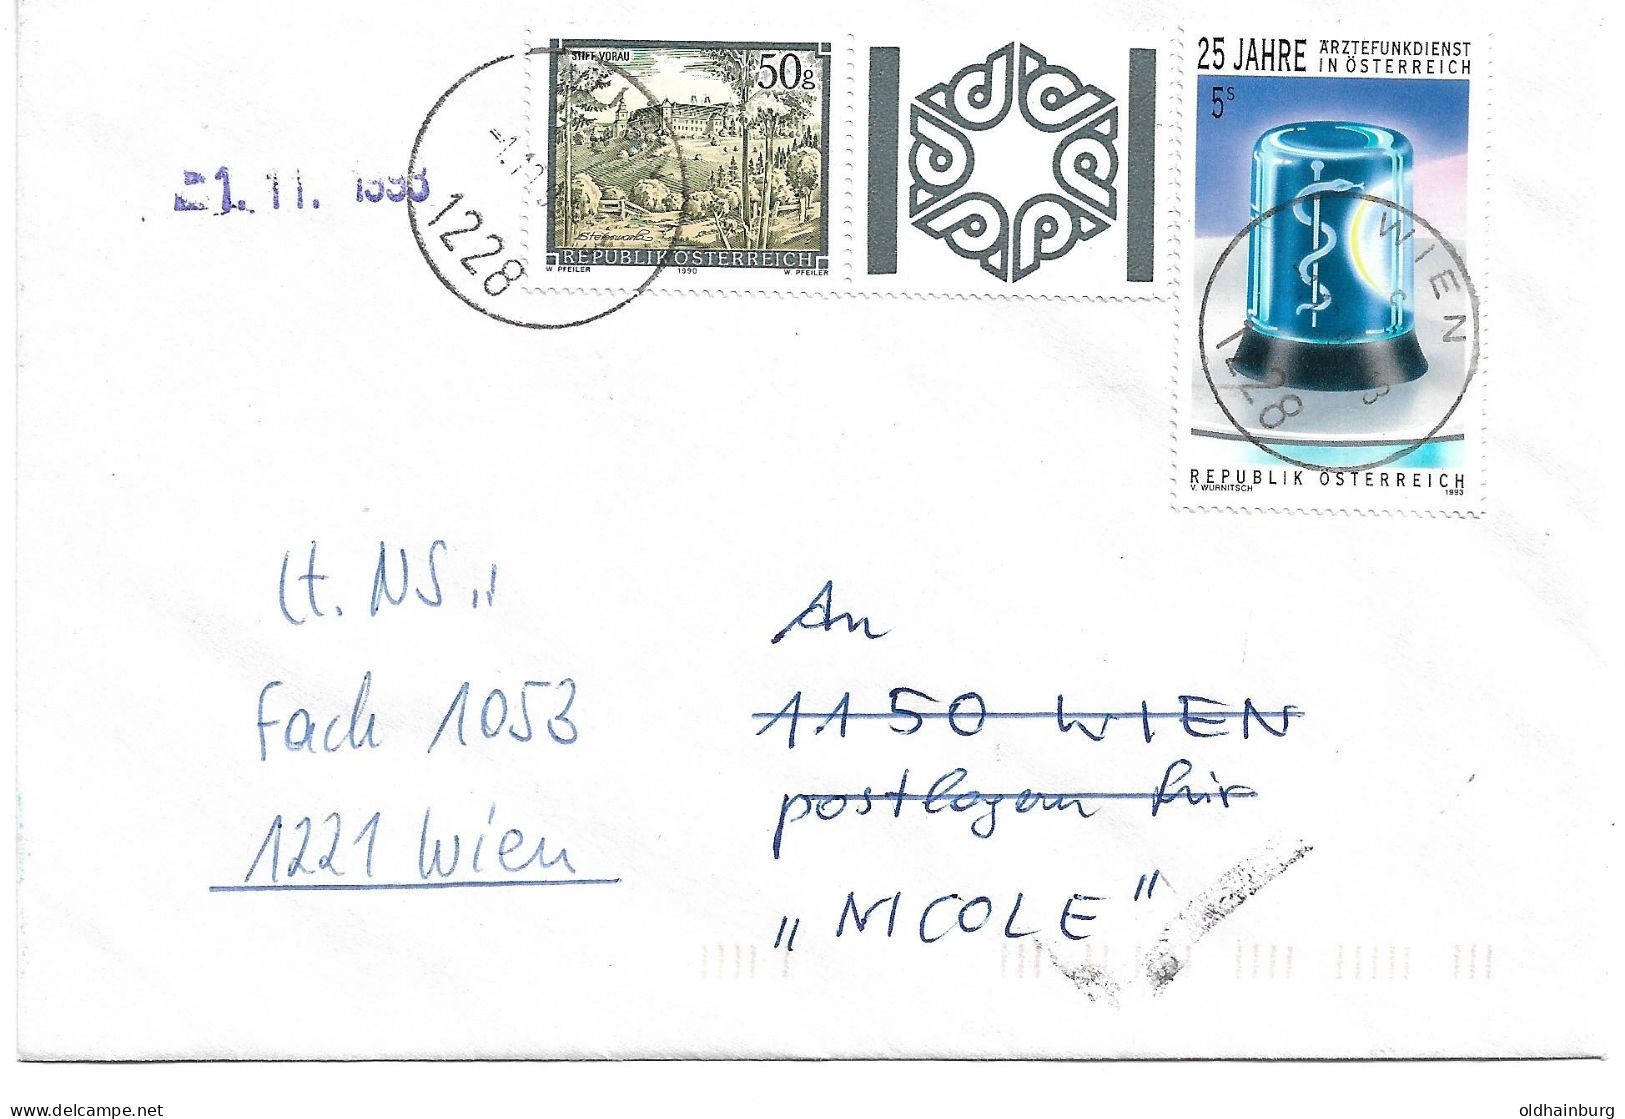 STIFT VORAU
50g
Steiermark
REPUBLIK ÖSTERREICH
W. PFEILER 1990 W. PFEILER
25 JAHRE ÄRZTEFUNKDIENST
IN ÖSTERREICH
5S
REPUBLIK ÖSTERREICH
V. WURNITSCH 1993
1228
WIEN
1228
21. 11. 1993
lt. NS
Fach 1053
1221 Wien
An
1150 WIEN
postlagern für
„NICOLE"
delcampe.net
oldhainburg